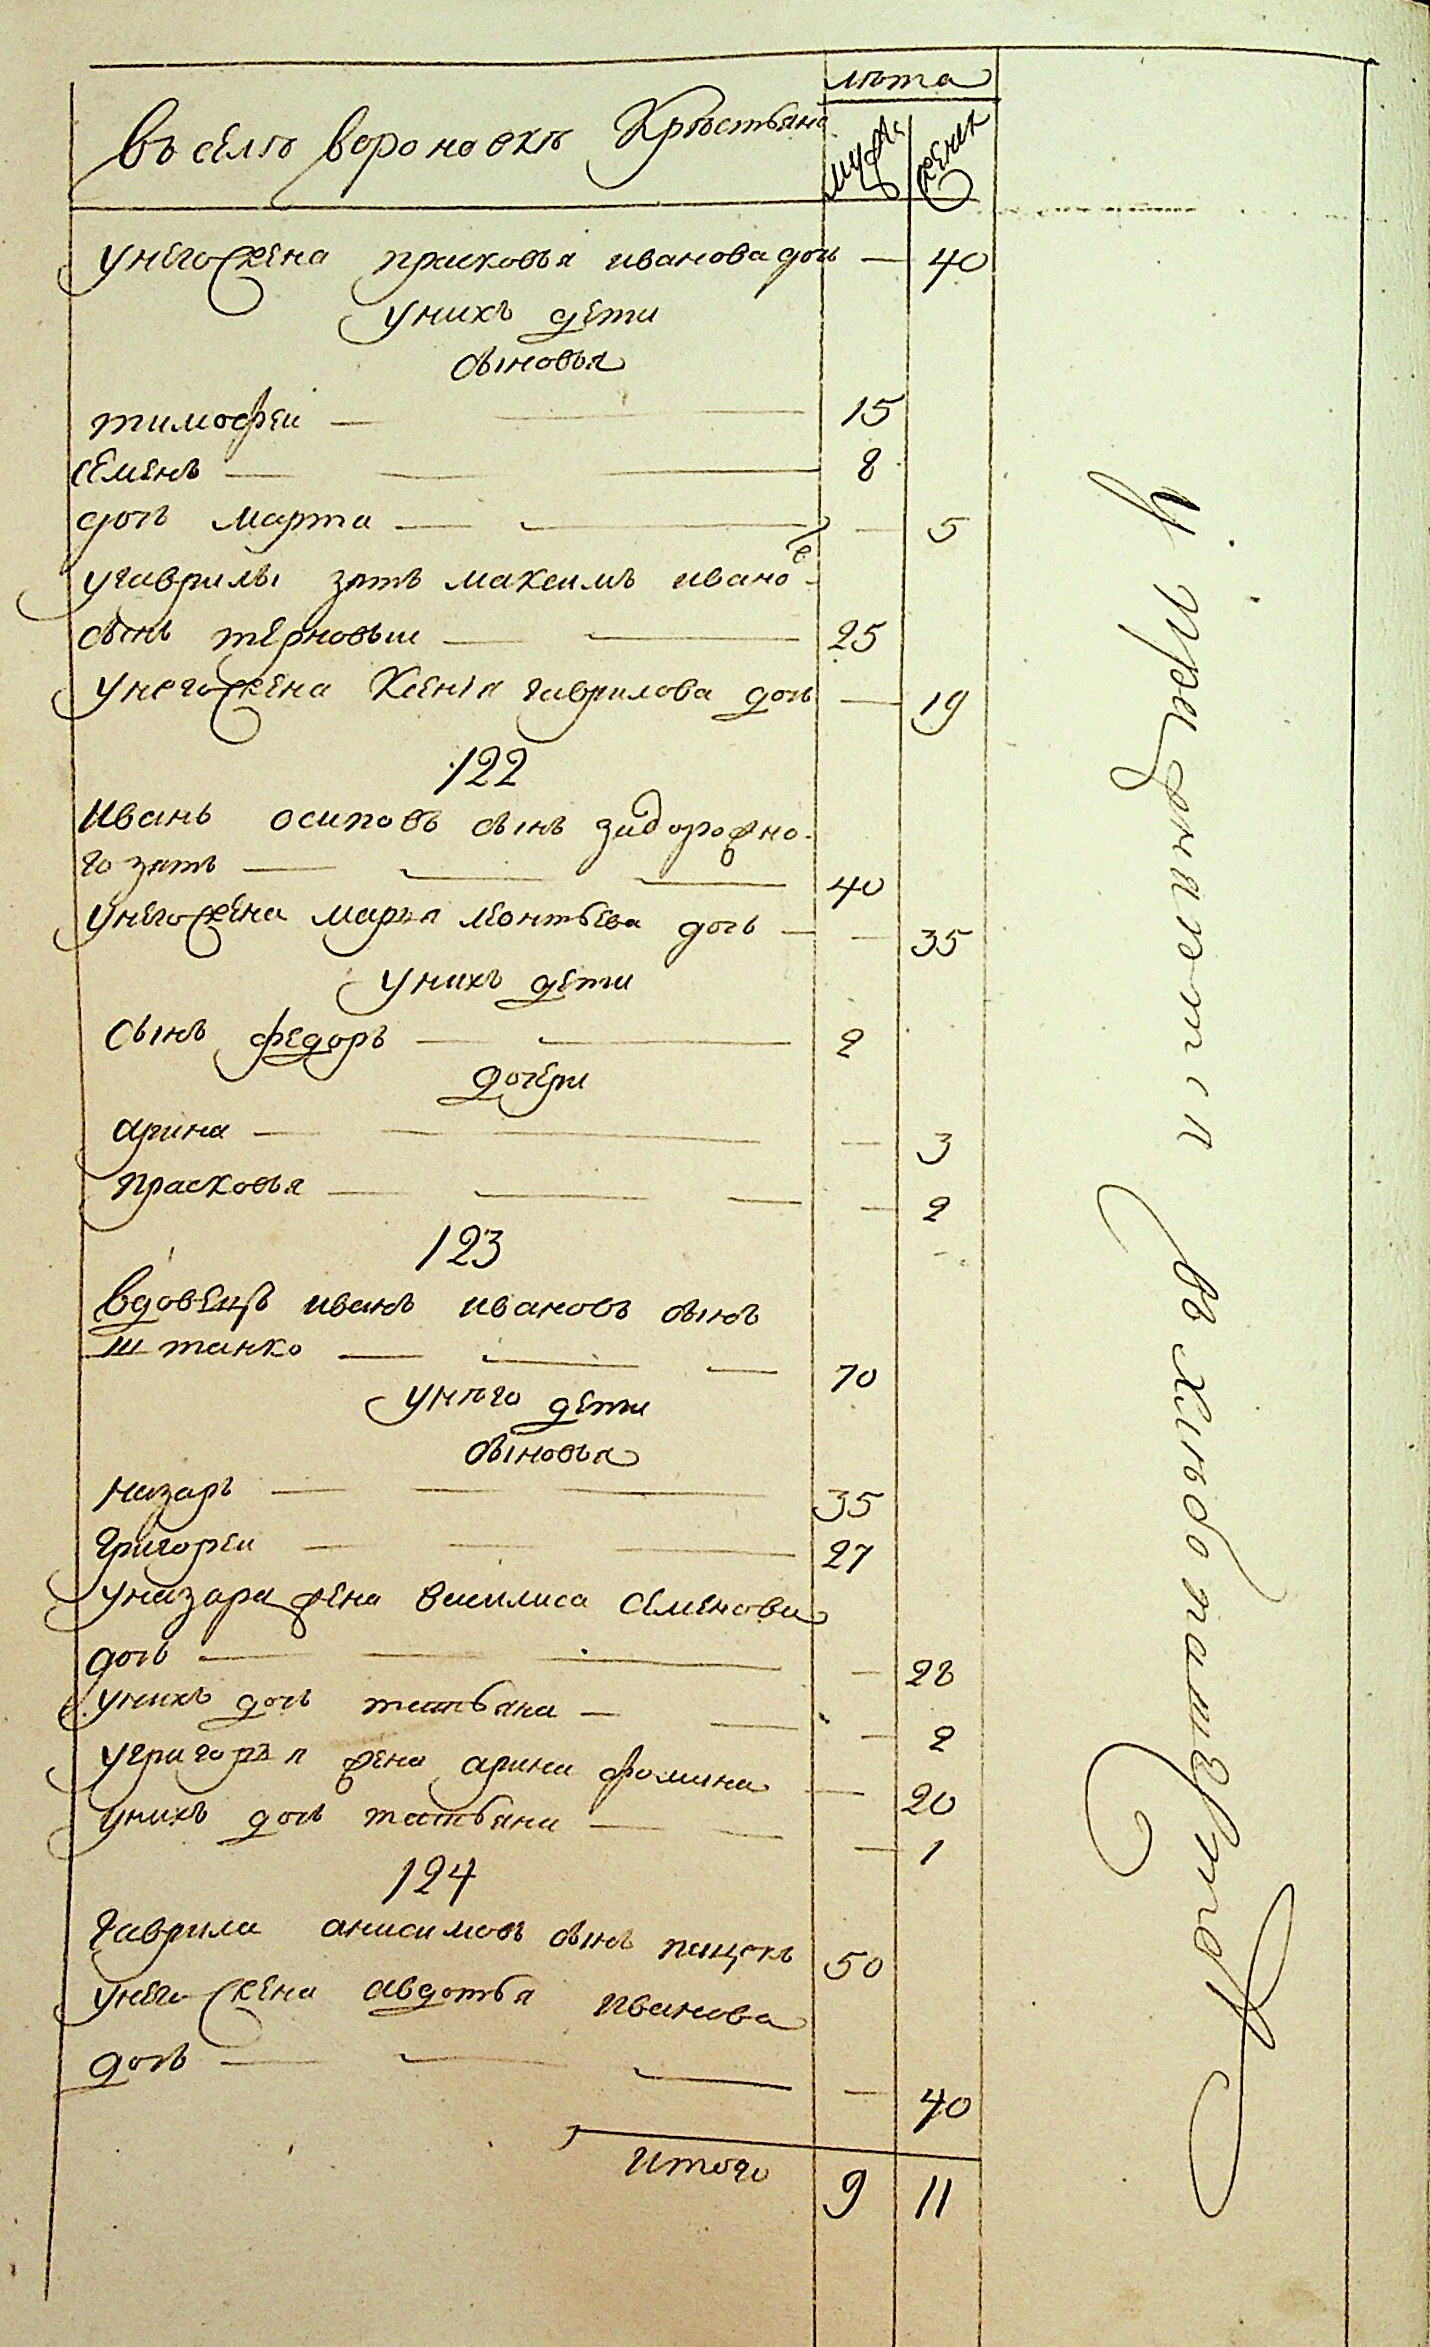 лѣта
Въ селѣ вороновкѣ Крѣстьянъ
мужс женск
унего жена прасковья иванова дочь — 40
унихъ дети
сыновья
тимофеи — 15
семенъ — 8
дочь марта — 5
угаврилы зять максимъ ивановъ
сынъ терновыи — 25
унего жена Ксенія гаврилова дочь — 19
122
Иванъ осиповъ сынъ задорожно
го зять — 40
унего жена марья леонтьева дочь — 35
унихъ дети
сынъ федоръ — 2
дочери
арина — 3
прасковья — 2
123
вдовецъ иванъ ивановъ сынъ
штанко — 70
унѣго дети
сыновья
назаръ — 35
григореи — 27
уназара жена василиса семенова
дочь — 28
унихъ дочь татьяна — 2
угригорья жена арина фомина — 20
унихъ дочь татьяна — 1
124
гаврила анисимовъ сынъ пацюкъ 50
унего жена авдотья иванова
дочь — 40
Итого 9 11